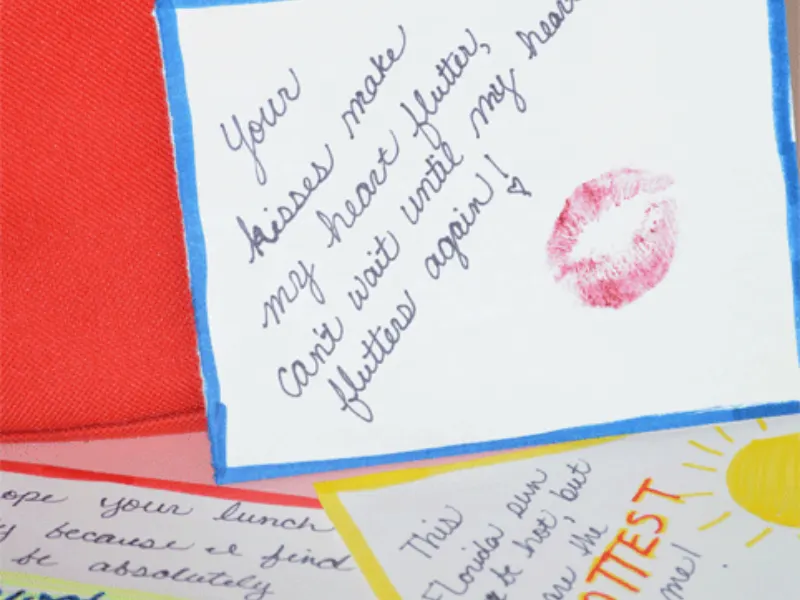 Your
kisses make
my heart flutter,
can't wait until my heart
flutters again!
ope your lunch
because I find
be absolutely
This
Florida sun
be hot, but
are the
OTTEST
me!